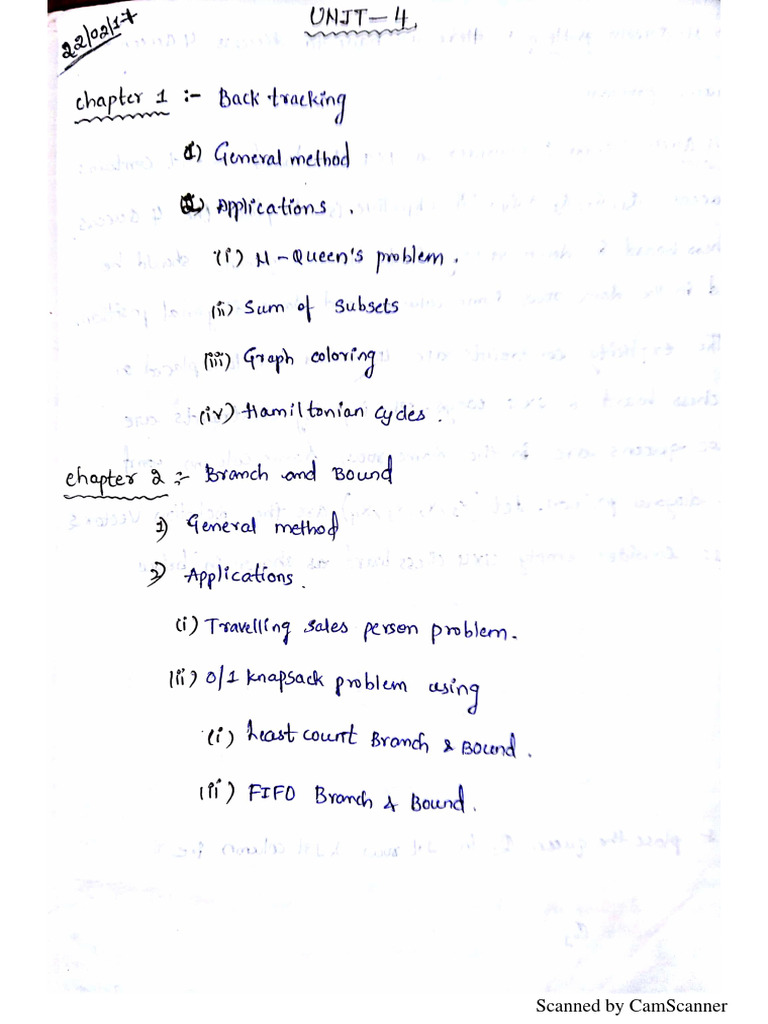 22/02/17
UNIT-4.
chapter 1 :- Back tracking
1) General method
2) Applications.
(i) N-Queen's problem.
(ii) Sum of Subsets
(iii) Graph coloring
(iv) Hamiltonian cycles.
chapter 2 :- Branch and Bound
1) General method
2) Applications.
(i) Travelling sales person problem.
(ii) 0/1 knapsack problem using
(i) Least count Branch & Bound.
(ii) FIFO Branch & Bound.
Scanned by CamScanner